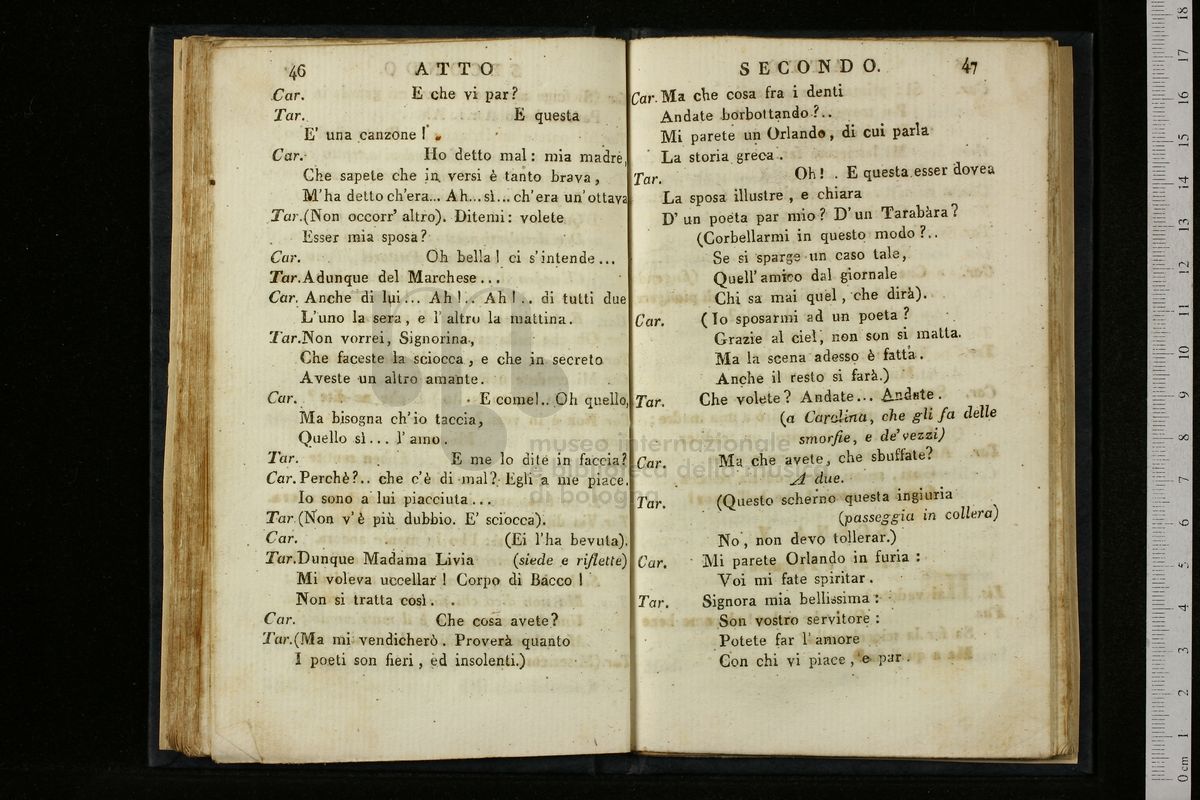 46 ATTO
Car. E che vi par?
Tar. E questa
E' una canzone!
Car. Ho detto mal: mia madre,
Che sapete che in versi è tanto brava,
M'ha detto ch'era... Ah...sì... ch'era un' ottava
Tar.(Non occorr' altro). Ditemi: volete
Esser mia sposa?
Car. Oh bella! ci s'intende...
Tar.Adunque del Marchese...
Car. Anche di lui... Ah!.. Ah!.. di tutti due
L'uno la sera, e l' altro la mattina.
Tar.Non vorrei, Signorina,
Che faceste la sciocca, e che in secreto
Aveste un altro amante.
Car. E come!.. Oh quello,
Ma bisogna ch'io taccia,
Quello sì... l' amo.
Tar. E me lo dite in faccia?
Car.Perchè?.. che c'è di mal? Egli a me piace.
Io sono a lui piacciuta...
Tar.(Non v'è più dubbio. E' sciocca).
Car. (Ei l'ha bevuta).
Tar.Dunque Madama Livia (siede e riflette)
Mi voleva uccellar! Corpo di Bacco!
Non si tratta così.
Car. Che cosa avete?
Tar.(Ma mi vendicherò. Proverà quanto
I poeti son fieri, ed insolenti.)
SECONDO. 47
Car. Ma che cosa fra i denti
Andate borbottando?..
Mi parete un Orlando, di cui parla
La storia greca.
Tar. Oh!. E questa esser dovea
La sposa illustre, e chiara
D' un poeta par mio? D' un Tarabàra?
(Corbellarmi in questo modo?..
Se si sparge un caso tale,
Quell' amico dal giornale
Chi sa mai quel, che dirà).
Car. (Io sposarmi ad un poeta?
Grazie al ciel, non son sì matta.
Ma la scena adesso è fatta.
Anche il resto si farà.)
Tar. Che volete? Andate... Andate.
(a Carolina, che gli fa delle
smorfie, e de' vezzi)
Car. Ma che avete, che sbuffate?
A due.
Tar. (Questo scherno questa ingiuria
(passeggia in collera)
No, non devo tollerar.)
Car. Mi parete Orlando in furia:
Voi mi fate spiritar.
Tar. Signora mia bellissima:
Son vostro servitore:
Potete far l' amore
Con chi vi piace, e par.
museo internazionale
e biblioteca della musica
di bologna
0 cm 1 2 3 4 5 6 7 8 9 10 11 12 13 14 15 16 17 18